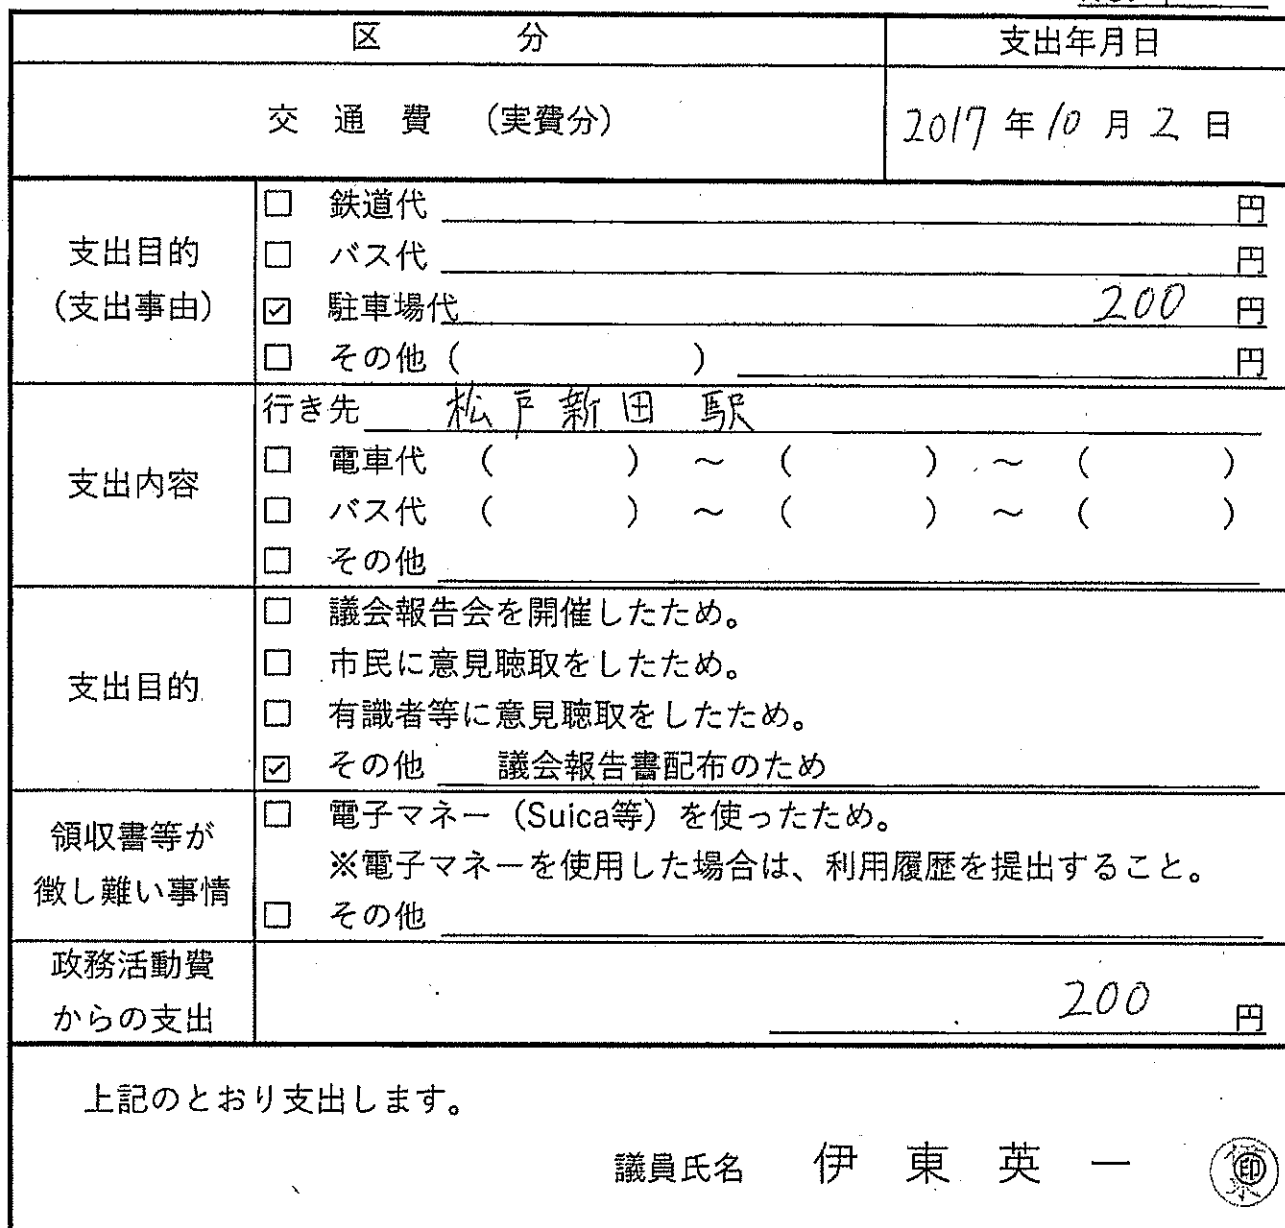 区 分 支出年月日
交 通 費 (実費分) 2017 年 10 月 2 日
支出目的
(支出事由)
☐ 鉄道代 円
☐ バス代 円
☑ 駐車場代 200 円
☐ その他 ( ) 円
支出内容
行き先 松戸新田 駅
☐ 電車代 ( ) ～ ( ) ～ ( )
☐ バス代 ( ) ～ ( ) ～ ( )
☐ その他
支出目的
☐ 議会報告会を開催したため。
☐ 市民に意見聴取をしたため。
☐ 有識者等に意見聴取をしたため。
☑ その他 議会報告書配布のため
領収書等が
徴し難い事情
☐ 電子マネー（Suica等）を使ったため。
※電子マネーを使用した場合は、利用履歴を提出すること。
☐ その他
政務活動費
からの支出
200 円
上記のとおり支出します。
議員氏名 伊 東 英 一 印